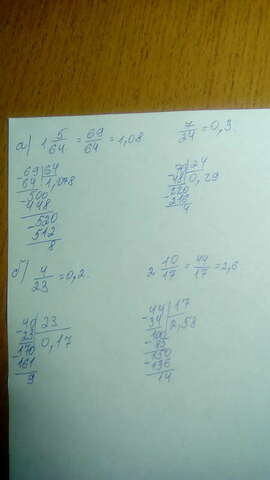 а) 1 5/64 = 69/64 = 1,08
7/24 = 0,3.
69 | 64
64 | 1,078
-500
448
-520
512
8
70 | 24
-48 | 0,29
-220
216
4
б) 4/23 = 0,2.
2 10/17 = 44/17 = 2,6
-40 | 23
23 | 0,17
-170
161
9
-44 | 17
34 | 2,58
-100
85
-150
-136
14